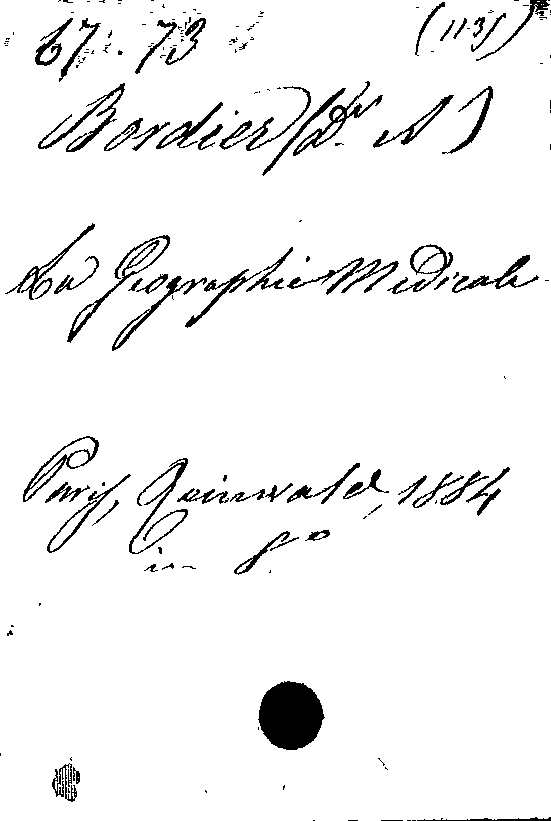 67.73 (1135)
Bordier (Dr A)
La Geographie Medicale
Paris, Reinwald, 1884
in 8°